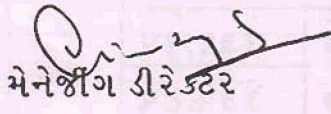 મેનેજીંગ ડીરેક્ટર